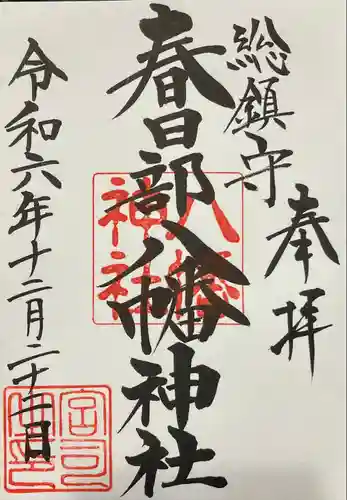 奉拝
総鎮守
春日部八幡神社
八幡
神社
令和六年十二月二十二日